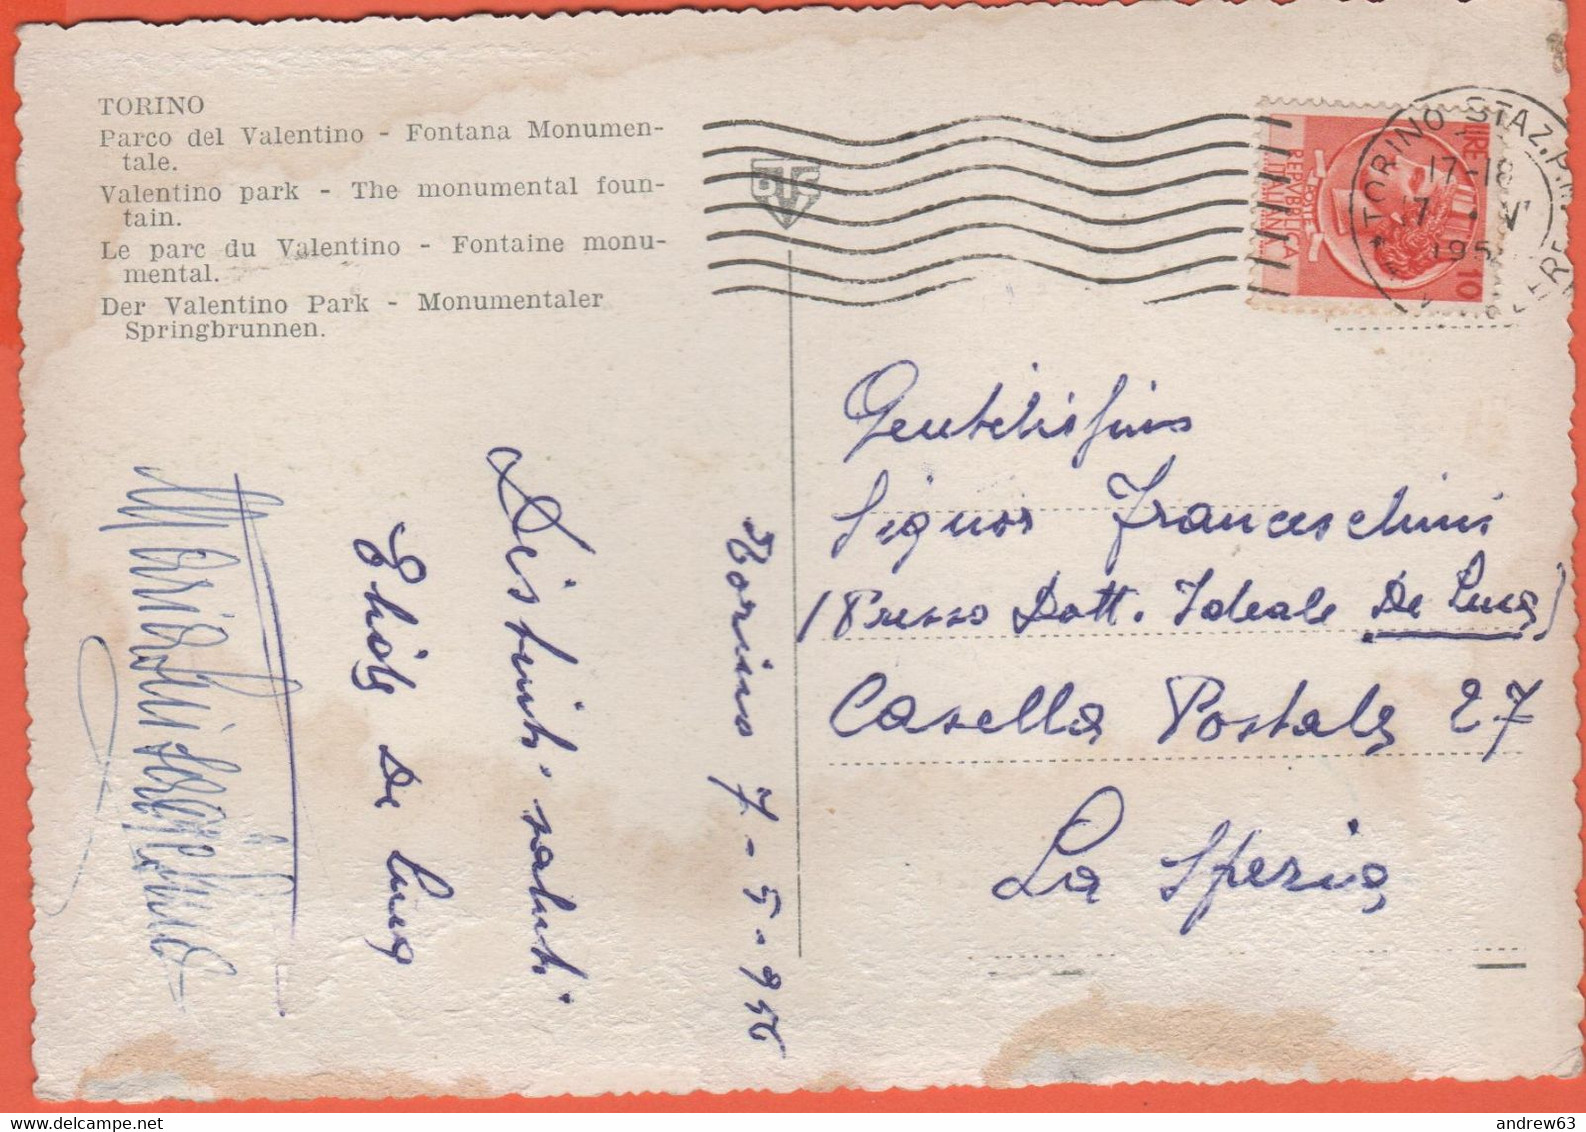 TORINO
Parco del Valentino - Fontana Monumen-
tale.
Valentino park - The monumental foun-
tain.
Le parc du Valentino - Fontaine monu-
mental.
Der Valentino Park - Monumentaler
Springbrunnen.
TORINO STAZ. P.
17-18
7 · V
195
LIRE 10
POSTE
REPVBBLICA
ITALIANA
Gentilissimo
Signor Franceschini
(Presso Dott. Ideale De Luca)
Casella Postale 27
La Spezia
Torino 7-5-956
Distinti saluti
De Luca
andrew63